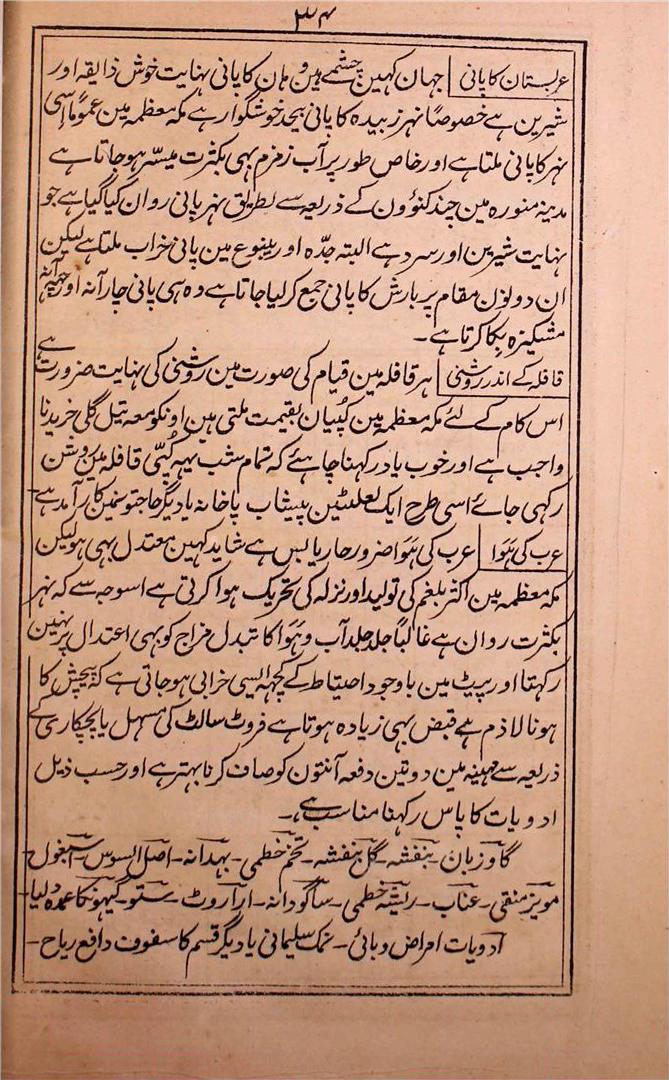 ۳۴
عربستان کا پانی جہان کہین چشمے ہین وہان کا پانی نہایت خوش ذایقہ اور
شیرین ہے خصوصًا نہر زبیدہ کا پانی بیحد خوشگوار ہے مکہ معظمہ مین عمومًا اسی
نہر کا پانی ملتا ہے اور خاص طور پر آب زمزم بہی بکثرت میسّر ہو جاتا ہے
مدینہ منورہ مین چند کنوؤن کے ذریعہ سے بطریق نہر پانی روان کیا گیا ہے جو
نہایت شیرین اور سرد ہے البتہ جدّہ اور ینبوع مین پانی خراب ملتا ہے لیکن
ان دولون مقام پر بارش کا پانی جمع کر لیا جاتا ہے وہ ہی پانی چار آنہ اور چہہ آنہ
مشکیزہ بکا کرتا ہے۔
قافلہ کے اندر روشنی ہر قافلہ مین قیام کی صورت مین روشنی کی نہایت ضرورت ہے
اس کام کے لئے مکہ معظمہ مین کُپیان بقیمت ملتی ہین اونکو معہ تیل گلی خریدنا
واجب ہے اور خوب یاد رکہنا چاہئے کہ تمام شب یہہ کُپّی قافلہ مین روشن
رکہی جائے اسی طرح ایک لعلٹین پیشاب پاخانہ یا دیگر حاجتونمین کار آمد ہے
عرب کی ہَوَا عرب کی ہَوَا ضرور حار یابس ہے شاید کہین معتدل بہی ہو لیکن
مکہ معظمہ مین اکثر بلغم کی تولید اور نزلہ کی تحریک ہوا کرتی ہے اسوجہ سے کہ نہر
بکثرت روان ہے غالبًا جلد جلد آب و ہَوَا کا تبدل مزاج کو بہی اعتدال پر نہین
رکہتا اور پیٹ مین باوجود احتیاط کے کچہہ ایسی خرابی ہو جاتی ہے کہ پیچش کا
ہونا لازم ہے قبض بہی زیادہ ہوتا ہے فروٹ سالٹ کی مسہل یا پچکاری کے
ذریعہ سے مہینہ مین دو تین دفعہ آنتون کو صاف کرنا بہتر ہے اور حسب ذیل
ادویات کا پاس رکہنا مناسب ہے۔
گاوزبان۔ بنفشہ۔ گل بنفشہ۔ تخم خطمی۔ بہدانہ۔ اصل السوس۔ اسبغول
مویز منقی۔ عناب۔ ریشہ خطمی۔ ساگودانہ۔ اراروٹ۔ ستو۔ گیہونکا عمدہ دلیا۔
ادویات امراض وبائی۔ نمک سلیمانی یا دیگر قسم کا سفوف دافع ریاح۔